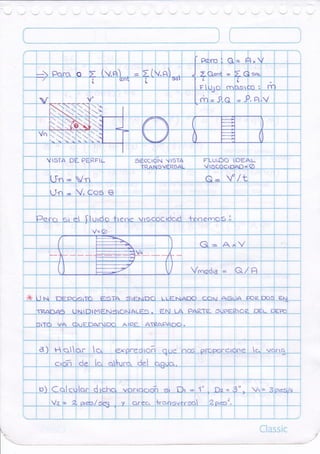 Pero: Q = A × V
⇒ Para o Σ (V.A)ent = Σ (V.A)sal
Σ Qent = Σ Qsal
Flujo masico: ṁ
ṁ = ρ.Q = ρ.A.V
V
V
θ
Vn
VISTA DE PERFIL
SECCIÓN VISTA TRANSVERSAL
FLUIDO IDEAL
VISCOCIDAD=∅
Q = V/t
Un = V. Cos θ
Pero si el fluido tiene viscocidad tenemos:
V=∅
Q = A × V
Vmedia = Q/A
* UN DEPOSITO ESTA SIENDO LLENADO CON AGUA POR DOS EN
TRADAS UNIDIMENSIONALES. EN LA PARTE SUPERIOR DEL DEPO
SITO VA QUEDANDO AIRE ATRAPADO.
a) Hallar la expresión que nos proporcione la varia
ción de la altura del agua.
b) Calcular dicha variación si D1 = 1", D2 = 3", V1= 3pies/s
V2 = 2 pies/seg, y area transversal 2pies².
Classic